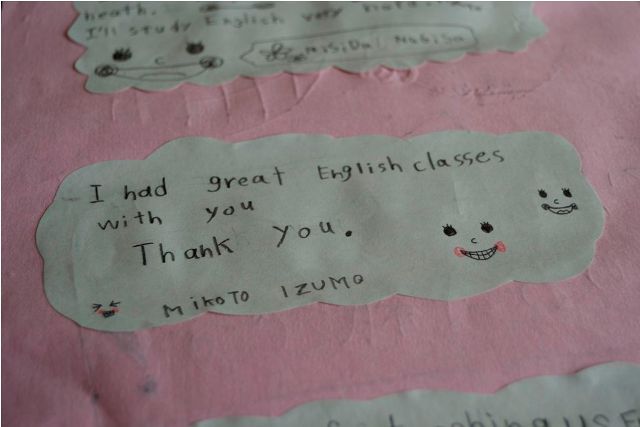 heath.
I'll study English very hard.
I had great English classes
with you
Thank you.
MIKOTO IZUMO